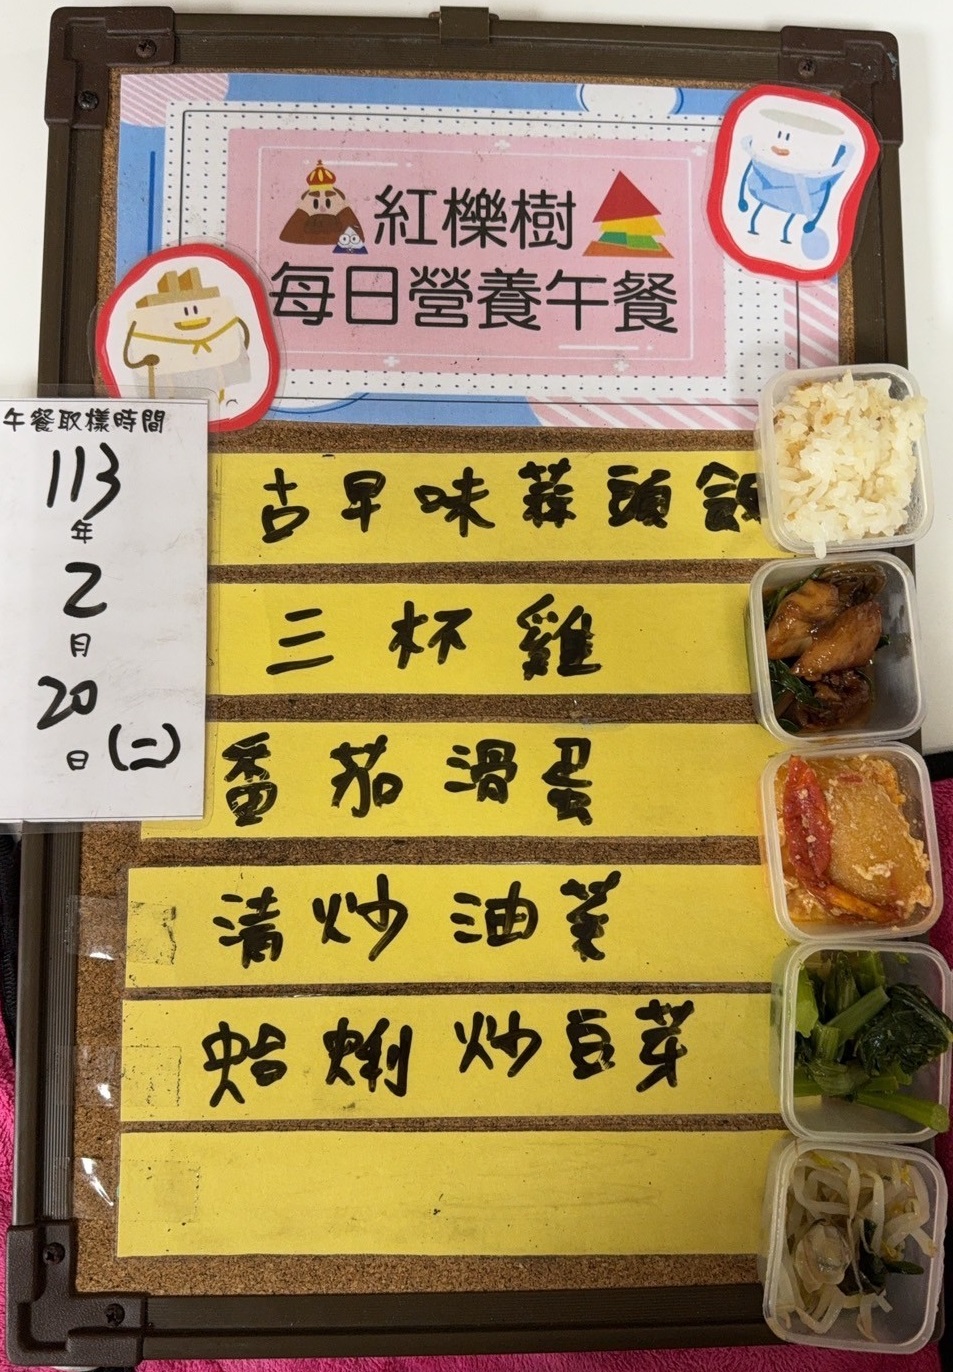 紅櫟樹
每日營養午餐
午餐取樣時間
113
年
2
月
20
日 (二)
古早味蒜頭飯
三杯雞
番茄滑蛋
清炒油菜
蛤蜊炒豆芽